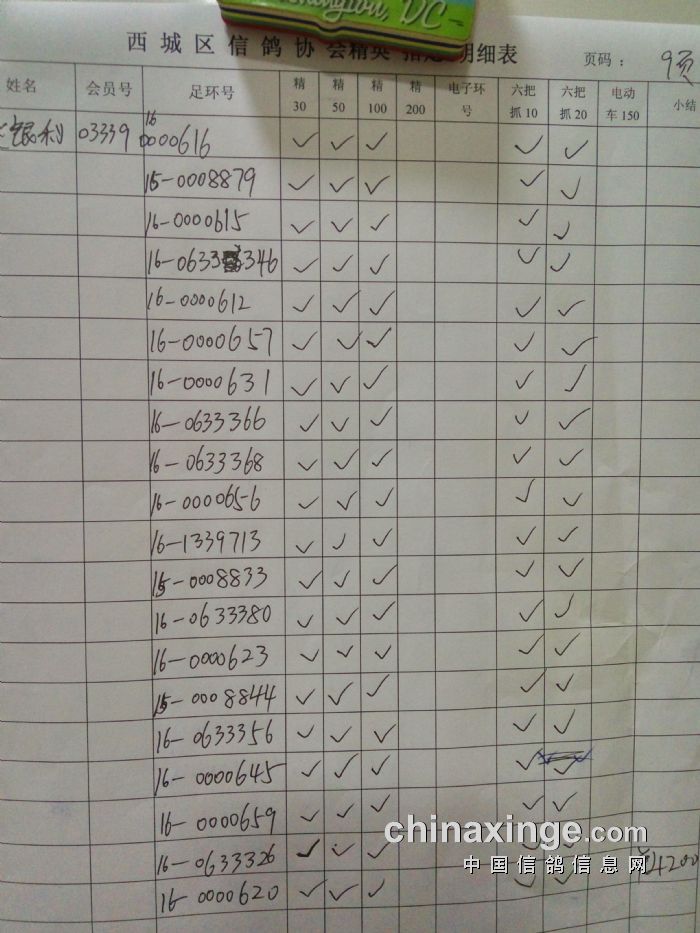 DC
西城区信鸽协会精英 明细表 页码： 9页
姓名 会员号 足环号 精30 精50 精100 精200 电子环号 六把抓10 六把抓20 电动车150 小结
银利 03339 16 0000616 ✓ ✓ ✓ ✓ ✓
15-0008879 ✓ ✓ ✓ ✓ ✓
16-0000615 ✓ ✓ ✓ ✓ ✓
16-0633346 ✓ ✓ ✓ ✓ ✓
16-0000612 ✓ ✓ ✓ ✓ ✓
16-0000657 ✓ ✓ ✓ ✓ ✓
16-0000631 ✓ ✓ ✓ ✓ ✓
16-0633366 ✓ ✓ ✓ ✓ ✓
16-0633368 ✓ ✓ ✓ ✓ ✓
16-0000656 ✓ ✓ ✓ ✓ ✓
16-1339713 ✓ ✓ ✓ ✓ ✓
15-0008833 ✓ ✓ ✓ ✓ ✓
16-0633380 ✓ ✓ ✓ ✓ ✓
16-0000623 ✓ ✓ ✓ ✓ ✓
15-0008844 ✓ ✓ ✓ ✓ ✓
16-0633356 ✓ ✓ ✓ ✓ ✓
16-0000645 ✓ ✓ ✓ ✓ ✓
16-0000659 ✓ ✓ ✓ ✓ ✓
16-0633326 ✓ ✓ ✓ ✓ ✓ ¥4200
16-0000620 ✓ ✓ ✓ ✓ ✓
chinaxinge.com
中国信鸽信息网